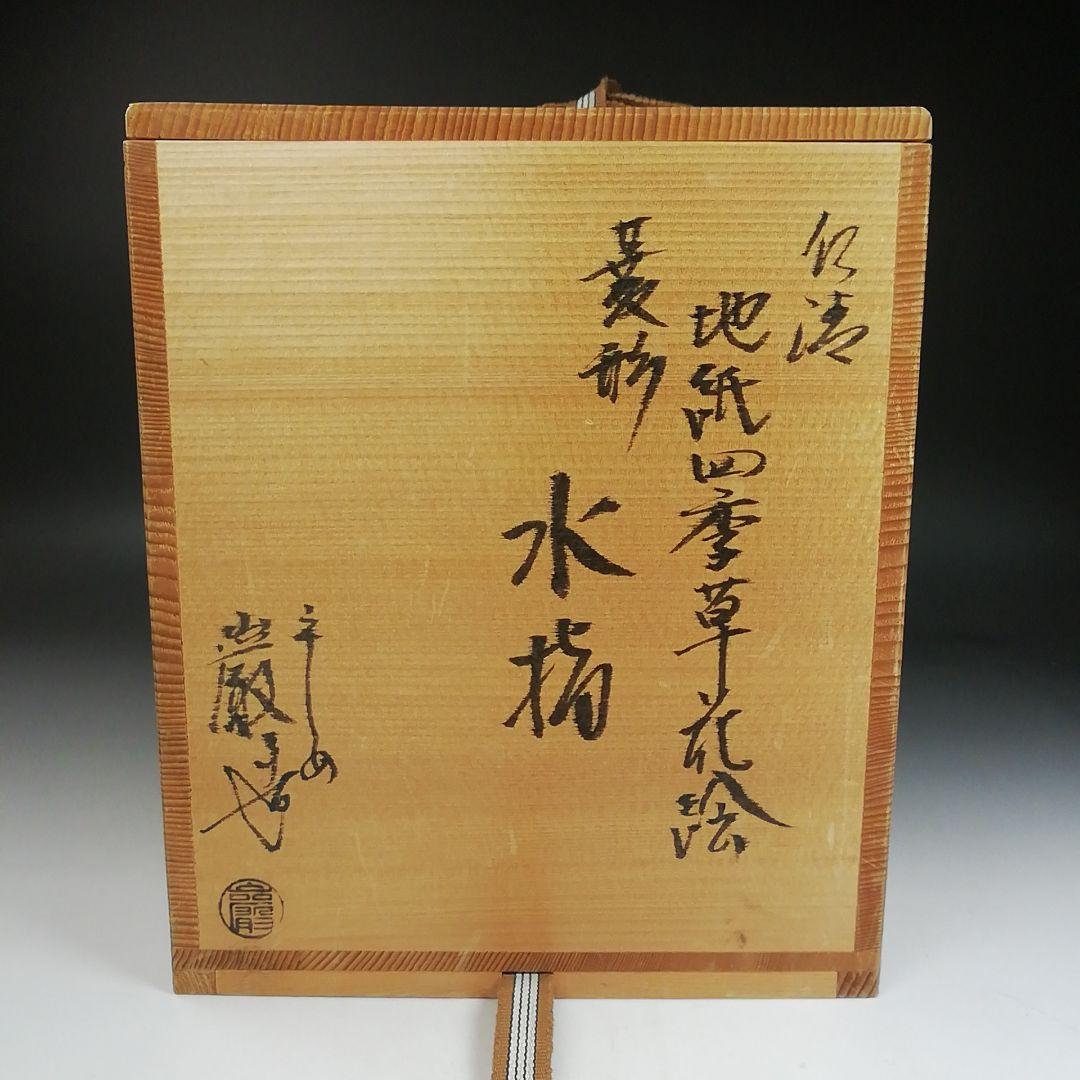 仁清
地紙四季草花絵
菱形
水指
巌